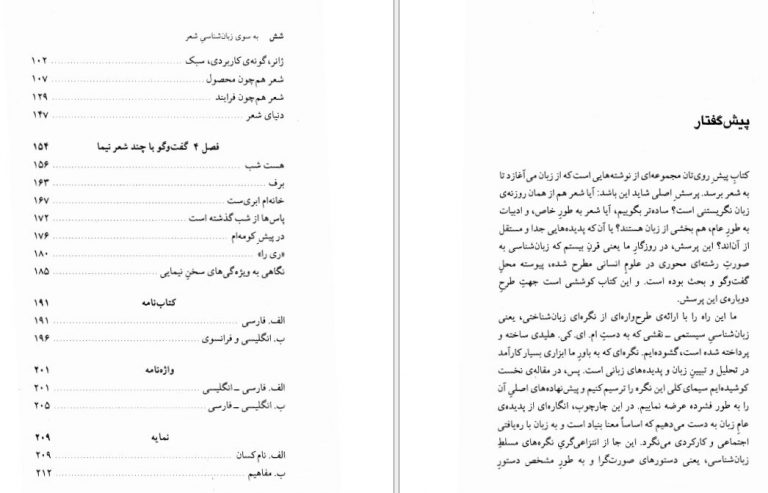 شش به سوی زبان‌شناسیِ شعر
ژانر، گونه‌ی کاربردی، سبک ۱۰۲
شعر هم‌چون محصول ۱۰۷
شعر هم‌چون فرایند ۱۲۹
دنیای شعر ۱۴۷
فصل ۴ گفت‌وگو با چند شعر نیما ۱۵۴
هست شب ۱۵۶
برف ۱۶۳
خانه‌ام ابری‌ست ۱۶۷
پاس‌ها از شب گذشته است ۱۷۲
در پیش کومه‌ام ۱۷۶
«ری را» ۱۸۰
نگاهی به ویژگی‌های سخنِ نیمایی ۱۸۵
کتاب‌نامه ۱۹۱
الف. فارسی ۱۹۱
ب. انگلیسی و فرانسوی ۱۹۶
واژه‌نامه ۲۰۱
الف. فارسی ــ انگلیسی ۲۰۱
ب. انگلیسی ــ فارسی ۲۰۵
نمایه ۲۰۹
الف. نام‌کسان ۲۰۹
ب. مفاهیم ۲۱۲
پیش‌گفتار
کتابِ پیش رویتان مجموعه‌ای از نوشته‌هایی است که از زبان می‌آغازد تا
به شعر برسد. پرسشِ اصلی شاید این باشد: آیا شعر هم از همان روزنه‌ی
زبان نگریستنی است؟ ساده‌تر بگوییم، آیا شعر به طورِ خاص، و ادبیات
به طورِ عام، هم بخشی از زبان هستند؟ یا آن‌که پدیده‌هایی جدا و مستقل
از آن‌اند؟ این پرسش، در روزگارِ ما یعنی قرنِ بیستم که زبان‌شناسی به
صورتِ رشته‌ای محوری در علومِ انسانی مطرح شده، پیوسته محلِ
گفت‌وگو و بحث بوده است. و این کتاب کوششی است جهتِ طرحِ
دوباره‌ی این پرسش.
ما این راه را با ارائه‌ی طرح‌واره‌ای از نگره‌ای زبان‌شناختی، یعنی
زبان‌شناسیِ سیستمی ــ نقشی که به دستِ ام. ای. کی. هلیدی ساخته و
پرداخته شده است، گشوده‌ایم. نگره‌ای که به باورِ ما ابزاری بسیار کارآمد
در تحلیل و تبیینِ زبان و پدیده‌های زبانی است. پس، در مقاله‌ی نخست
کوشیده‌ایم سیمای کلی این نگره را ترسیم کنیم و پیش‌نهاده‌های اصلیِ آن
را به طور فشرده عرضه نماییم. در این چارچوب، انگاره‌ای از پدیده‌ی
عامِ زبان به دست می‌دهیم که اساساً معنا بنیاد است و به زبان با ره‌یافتی
اجتماعی و کارکردی می‌نگرد. این جا از انتزاعی‌گریِ نگره‌های مسلطِ
زبان‌شناسی، یعنی دستورهای صورت‌گرا و به طورِ مشخص دستورِ